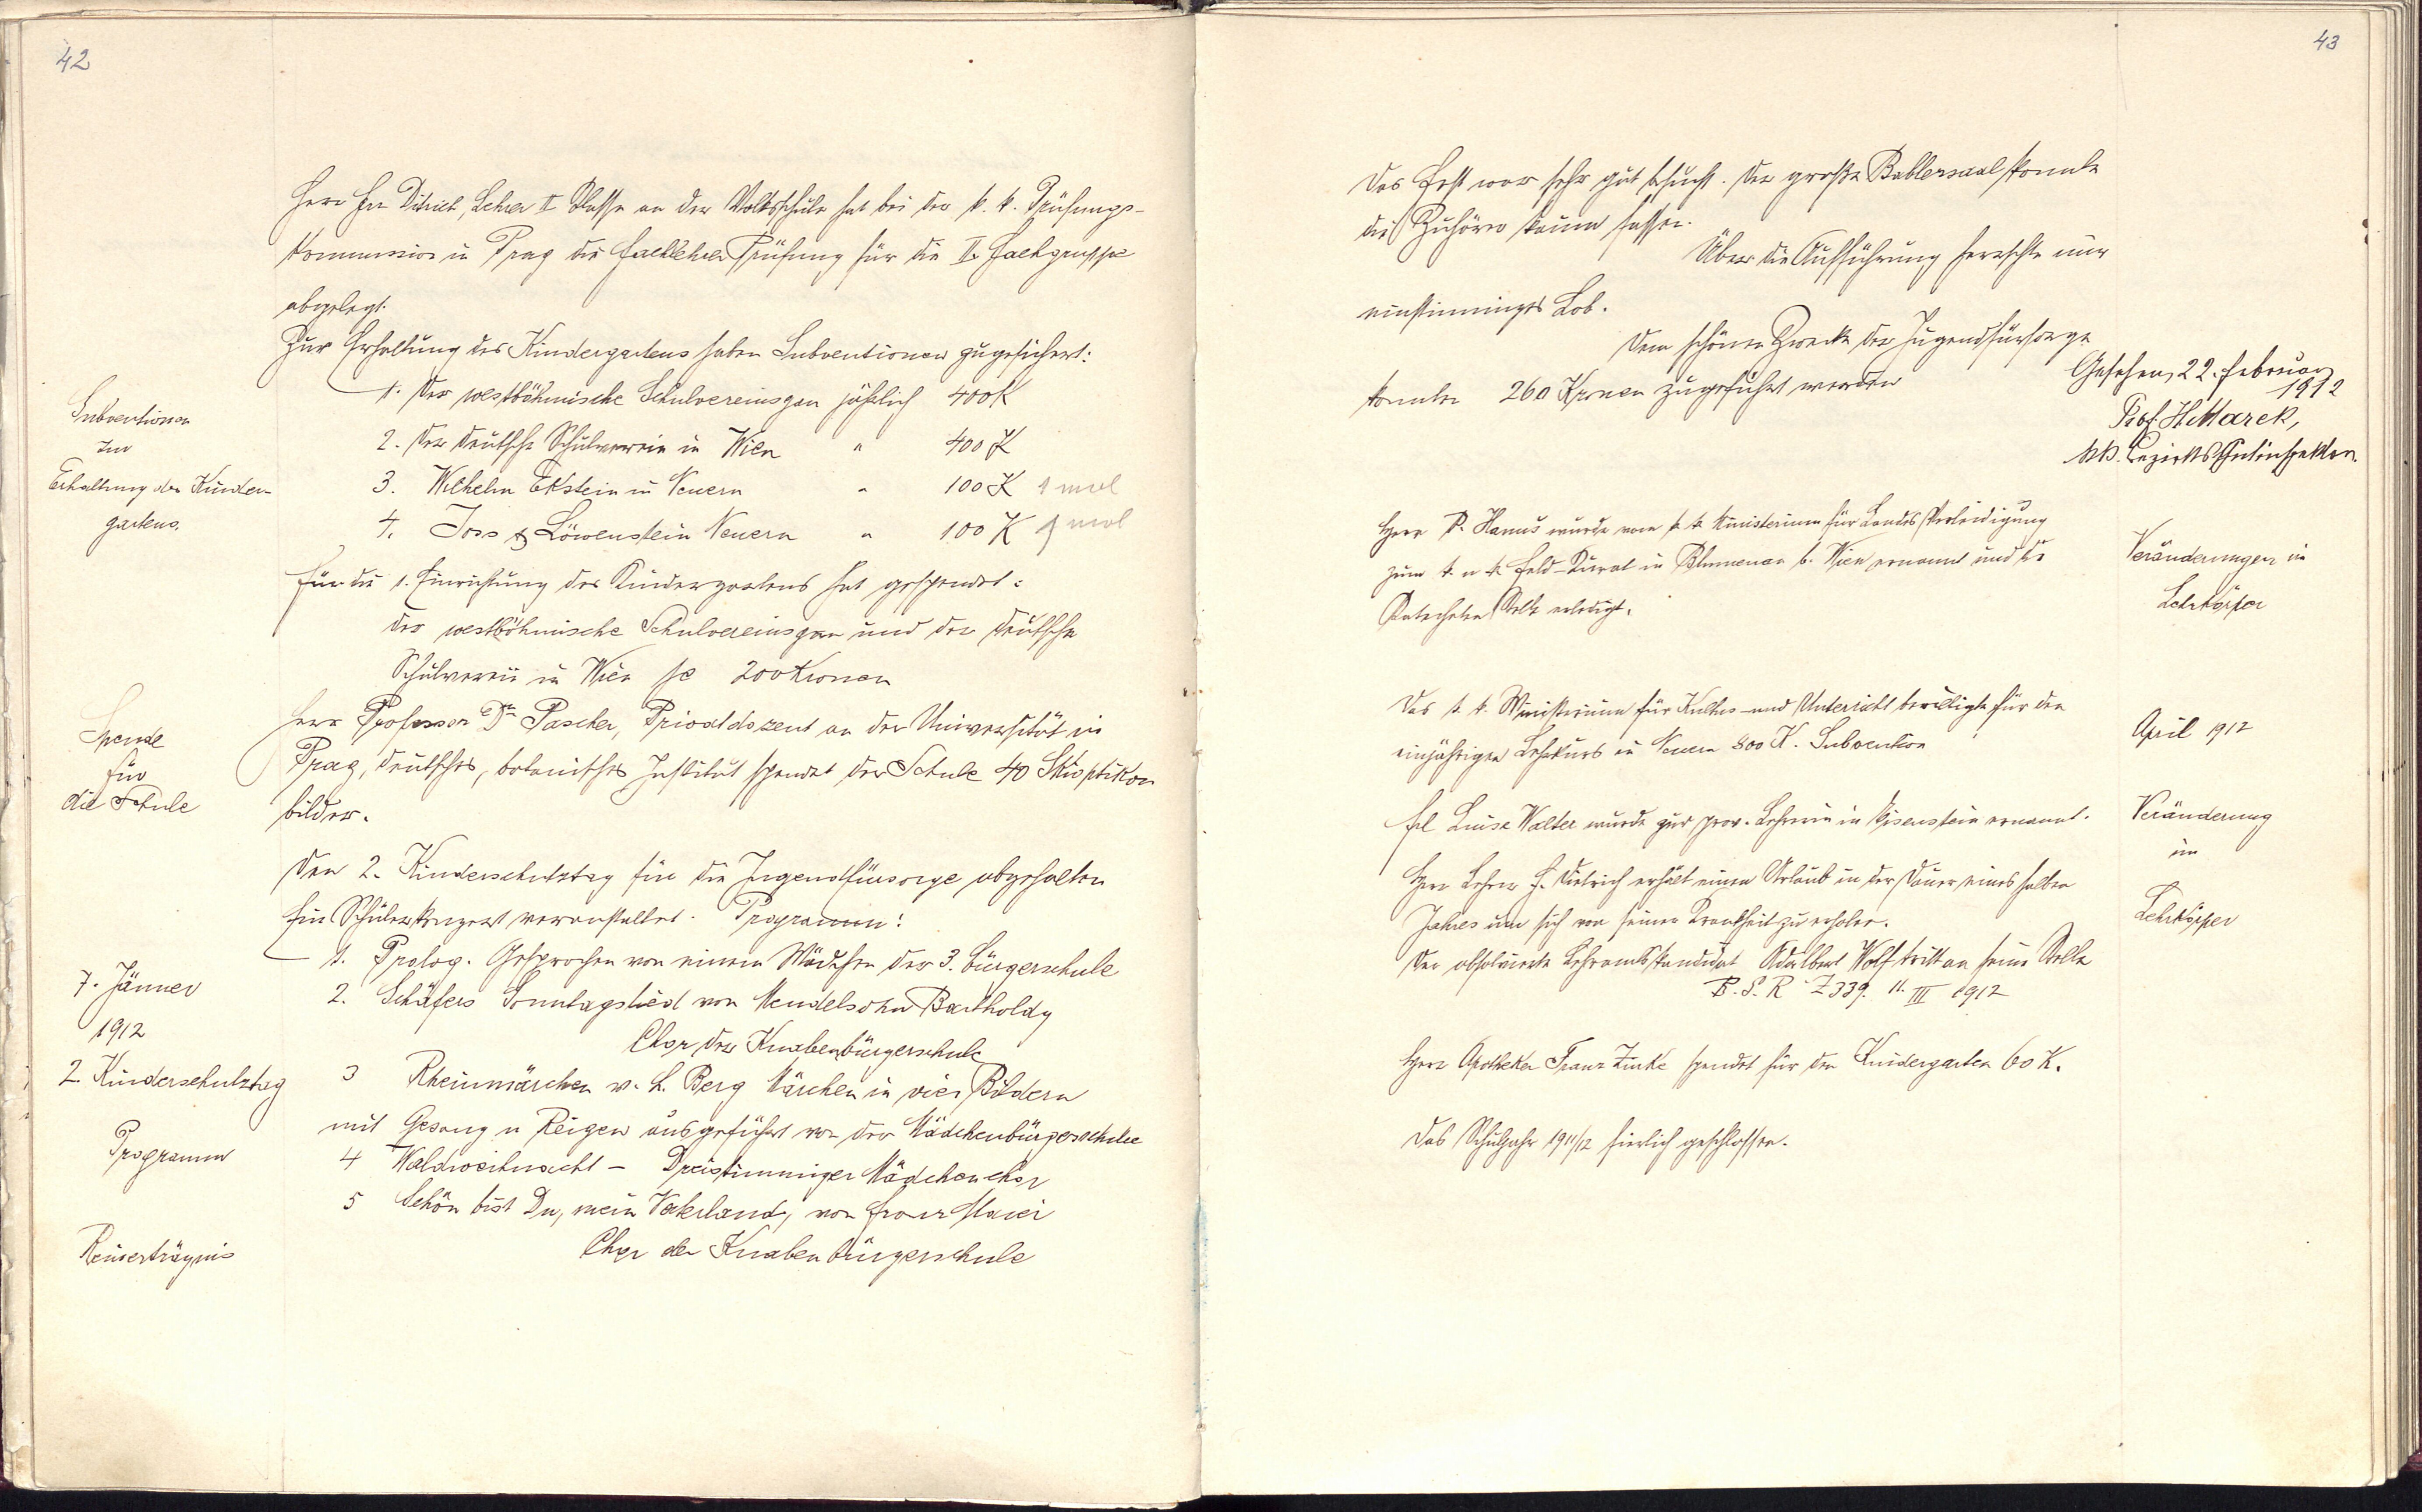 42
Herr Fr. Ditrich, Lehrer II Klasse an der Volksschule hat bei der k. k. Prüfungs-
kommission in Prag die Fachlehrer Prüfung für die II. Fachgruppe
abgelegt.
Zur Erhaltung des Kindergartens haben Subventionen zugesichert:
1. Der westböhmische Schulvereinsgau jährlich 400 K
Subventionen
zur
Erhaltung des Kinder-
gartens.
2. Der deutsche Schulverein in Wien " 400 K
3. Wilhelm Ekstein in Neuern " 100 K 1 mal
4. Joss & Löwenstein Neuern " 100 K 1 mal
Für die 1. Einrichtung des Kindergartens hat gespendet:
der westböhmische Schulvereinsgau und der deutsche
Schulverein in Wien je 200 Kronen
Spende
für
die Schule
Herr Professor Dr. Pascher, Privatdozent an der Universität in
Prag, deutsches, botanisches Institut spendet der Schule 40 Skioptikon
bilder.
Den 2. Kinderschutztag für die Jugendfürsorge abgehalten
Ein Schülerkonzert veranstaltet. Programm:
1. Prolog. Gesprochen von einem Mädchen der 3. Bürgerschule
7. Jänner
1912
2. Kinderschutztag
Programm
2. Schäfers Sonntagslied von Mendelsohn Bartholdy
Chor der Knabenbürgerschule
3 Rheinmärchen v. L. Berg Märchen in vier Bildern
mit Gesang u Reigen ausgeführt von der Mädchenbürgerschule
4 Waldweihnacht - Dreistimmiger Mädchenchor
5 Schön bist Du, mein Vaterland, von Franz Mair
Chor der Knabenbürgerschule
Reinerträgnis
43
Das Fest war sehr gut besucht. Der große Bablersaal konnte
die Zuhörer kaum fassen.
Über die Aufführung herrschte nur
einstimmiges Lob.
Dem schönen Zwecke der Jugendfürsorge
konnten 260 Kronen zugeführt werden
Gesehen, 22. Februar
1912
Prof. H. Marek,
k. k. Bezirksschulinspektor.
Herr P. Hanuš wurde vom k. k. Ministerium für Landes Verteidigung
zum k. u. k. Feld-Kurat in Blumenau b. Wien ernannt und die
Katecheten Stelle erledigt.
Veränderungen im
Lehrkörper
Das k. k. Ministerium für Kultus und Unterricht bewilligte für den
einjährigen Lehrkurs in Neuern 800 K. Subvention
April 1912
Frl Luise Walter wurde zur prov. Lehrerin in Eisenstein ernannt.
Herr Lehrer F. Dietrich erhält einen Urlaub in der Dauer eines halben
Jahres um sich von seiner Krankheit zu erholen.
Der absolvierte Lehramtskandidat Adalbert Wolf tritt an seine Stelle
B. S. R Z 339. 11. III 1912
Veränderung
im
Lehrkörper
Herr Apotheker Franz Zinke spendet für den Kindergarten 60 K.
Das Schuljahr 1911/12 feierlich geschlossen.